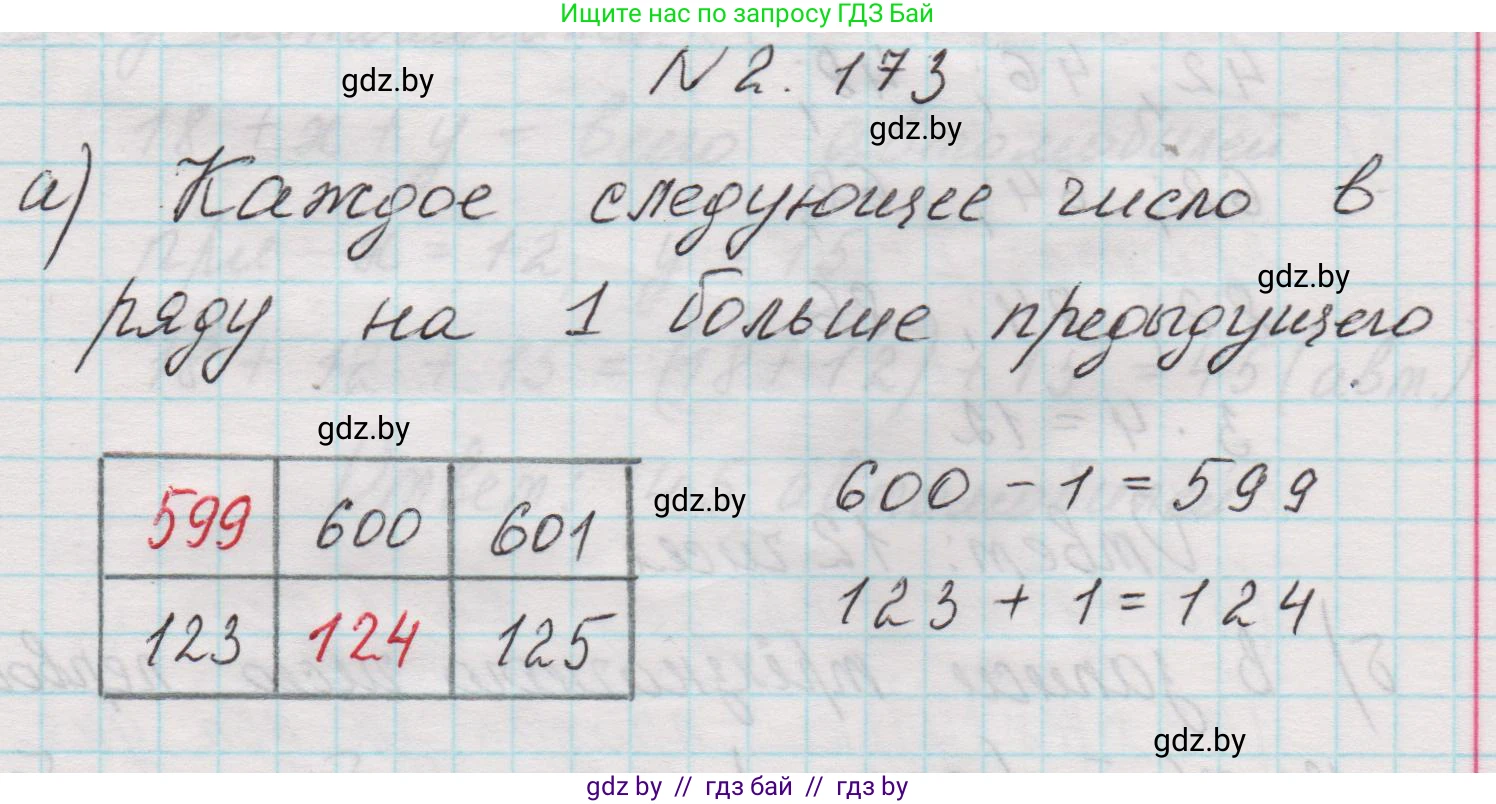 Ищите нас по запросу ГДЗ Бай
gdz.by
N 2. 173
gdz.by
а) Каждое следующее число в
gdz.by
ряду на 1 больше предыдущего
gdz.by
599 600 601
gdz.by
600 - 1 = 599
123 124 125
123 + 1 = 124
gdz.by
gdz by // гдз бай // гдз by